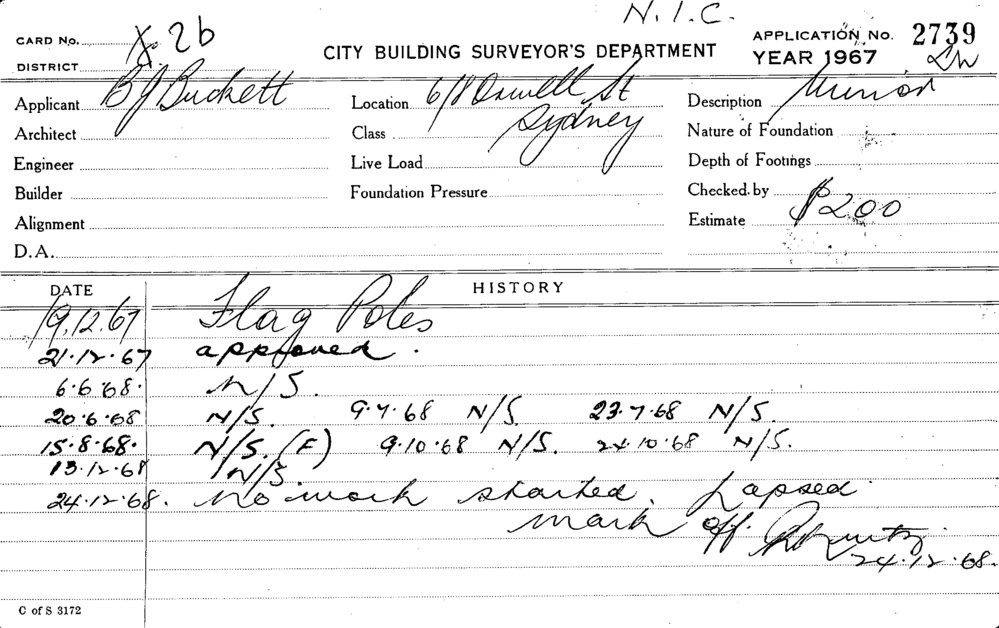 N.I.C.
CARD No. 2b
CITY BUILDING SURVEYOR'S DEPARTMENT
APPLICATION No. 2739
DISTRICT
YEAR 1967
Applicant B J Buckett
Location 6/8 Orwell St
Sydney
Description Minor
Architect
Class
Nature of Foundation
Engineer
Live Load
Depth of Footings
Builder
Foundation Pressure
Checked by
Alignment
Estimate $200
D.A.
DATE HISTORY
19.12.67 Flag Poles
21.12.67 approved.
6.6.68. N/S.
20.6.68 N/S. 9.7.68 N/S. 23.7.68 N/S.
15.8.68. N/S. (F) 9.10.68 N/S. 24.10.68 N/S.
13.12.68 N/S.
24.12.68. No work started. Lapsed
mark off.
24.12.68.
C of S 3172